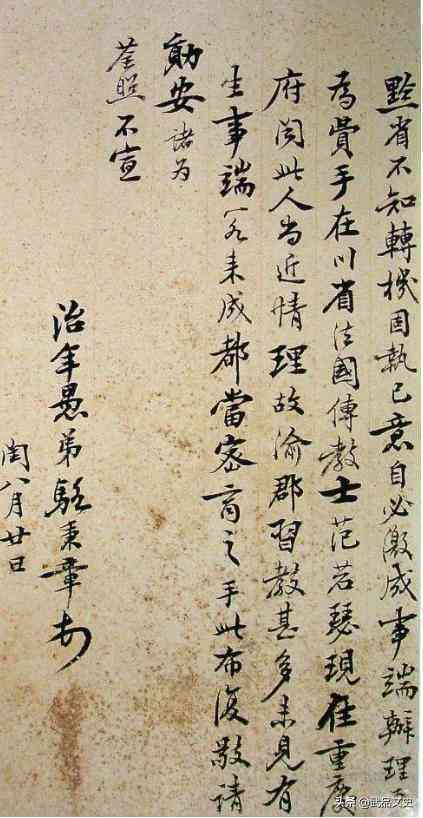 黔省不知轉機固執己意自必激成事端辦理
為費手在川省法國傳教士范若瑟現在重慶
府聞此人尚近情理故渝郡習教甚多未見有
生事端来成都當密商之手此布復敬請
勛安諸为
荃照不宣
治年愚弟駱秉章
閏八月廿日
头条 @武品文史